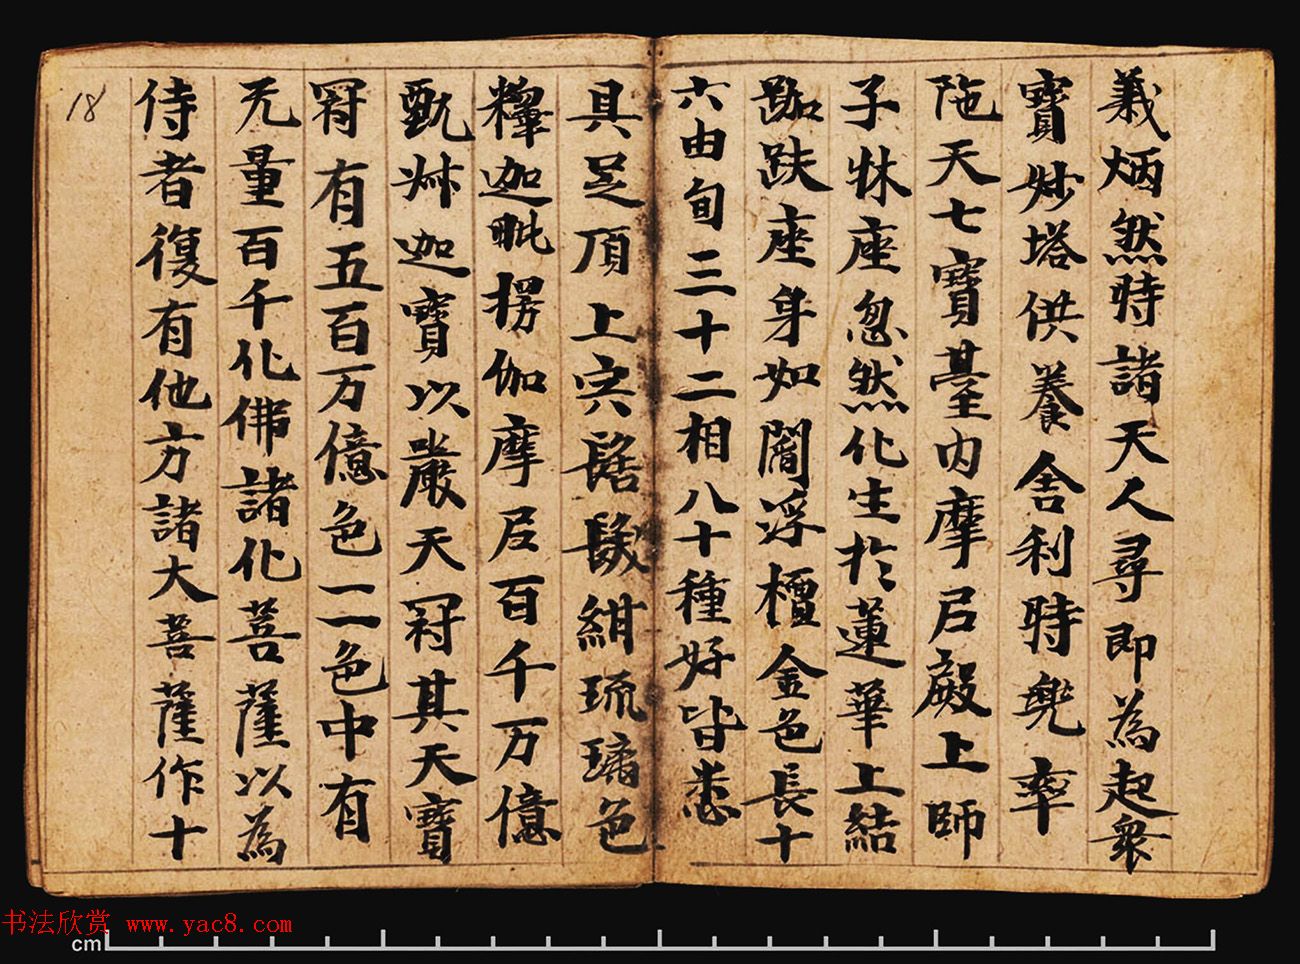 義炳然時諸天人尋即為起衆
寶妙塔供養舍利時兜率
陁天七寶臺内摩尼殿上師
子牀座忽然化生於蓮華上結
跏趺座身如閻浮檀金色長十
六由旬三十二相八十種好皆悉
具足頂上宍髻髮紺琉璃色
釋迦毗楞伽摩尼百千万億
甄叔迦寶以嚴天冠其天寶
冠有五百万億色一一色中有
无量百千化佛諸化菩薩以為
侍者復有他方諸大菩薩作十
18
书法欣赏 www.yac8.com
cm